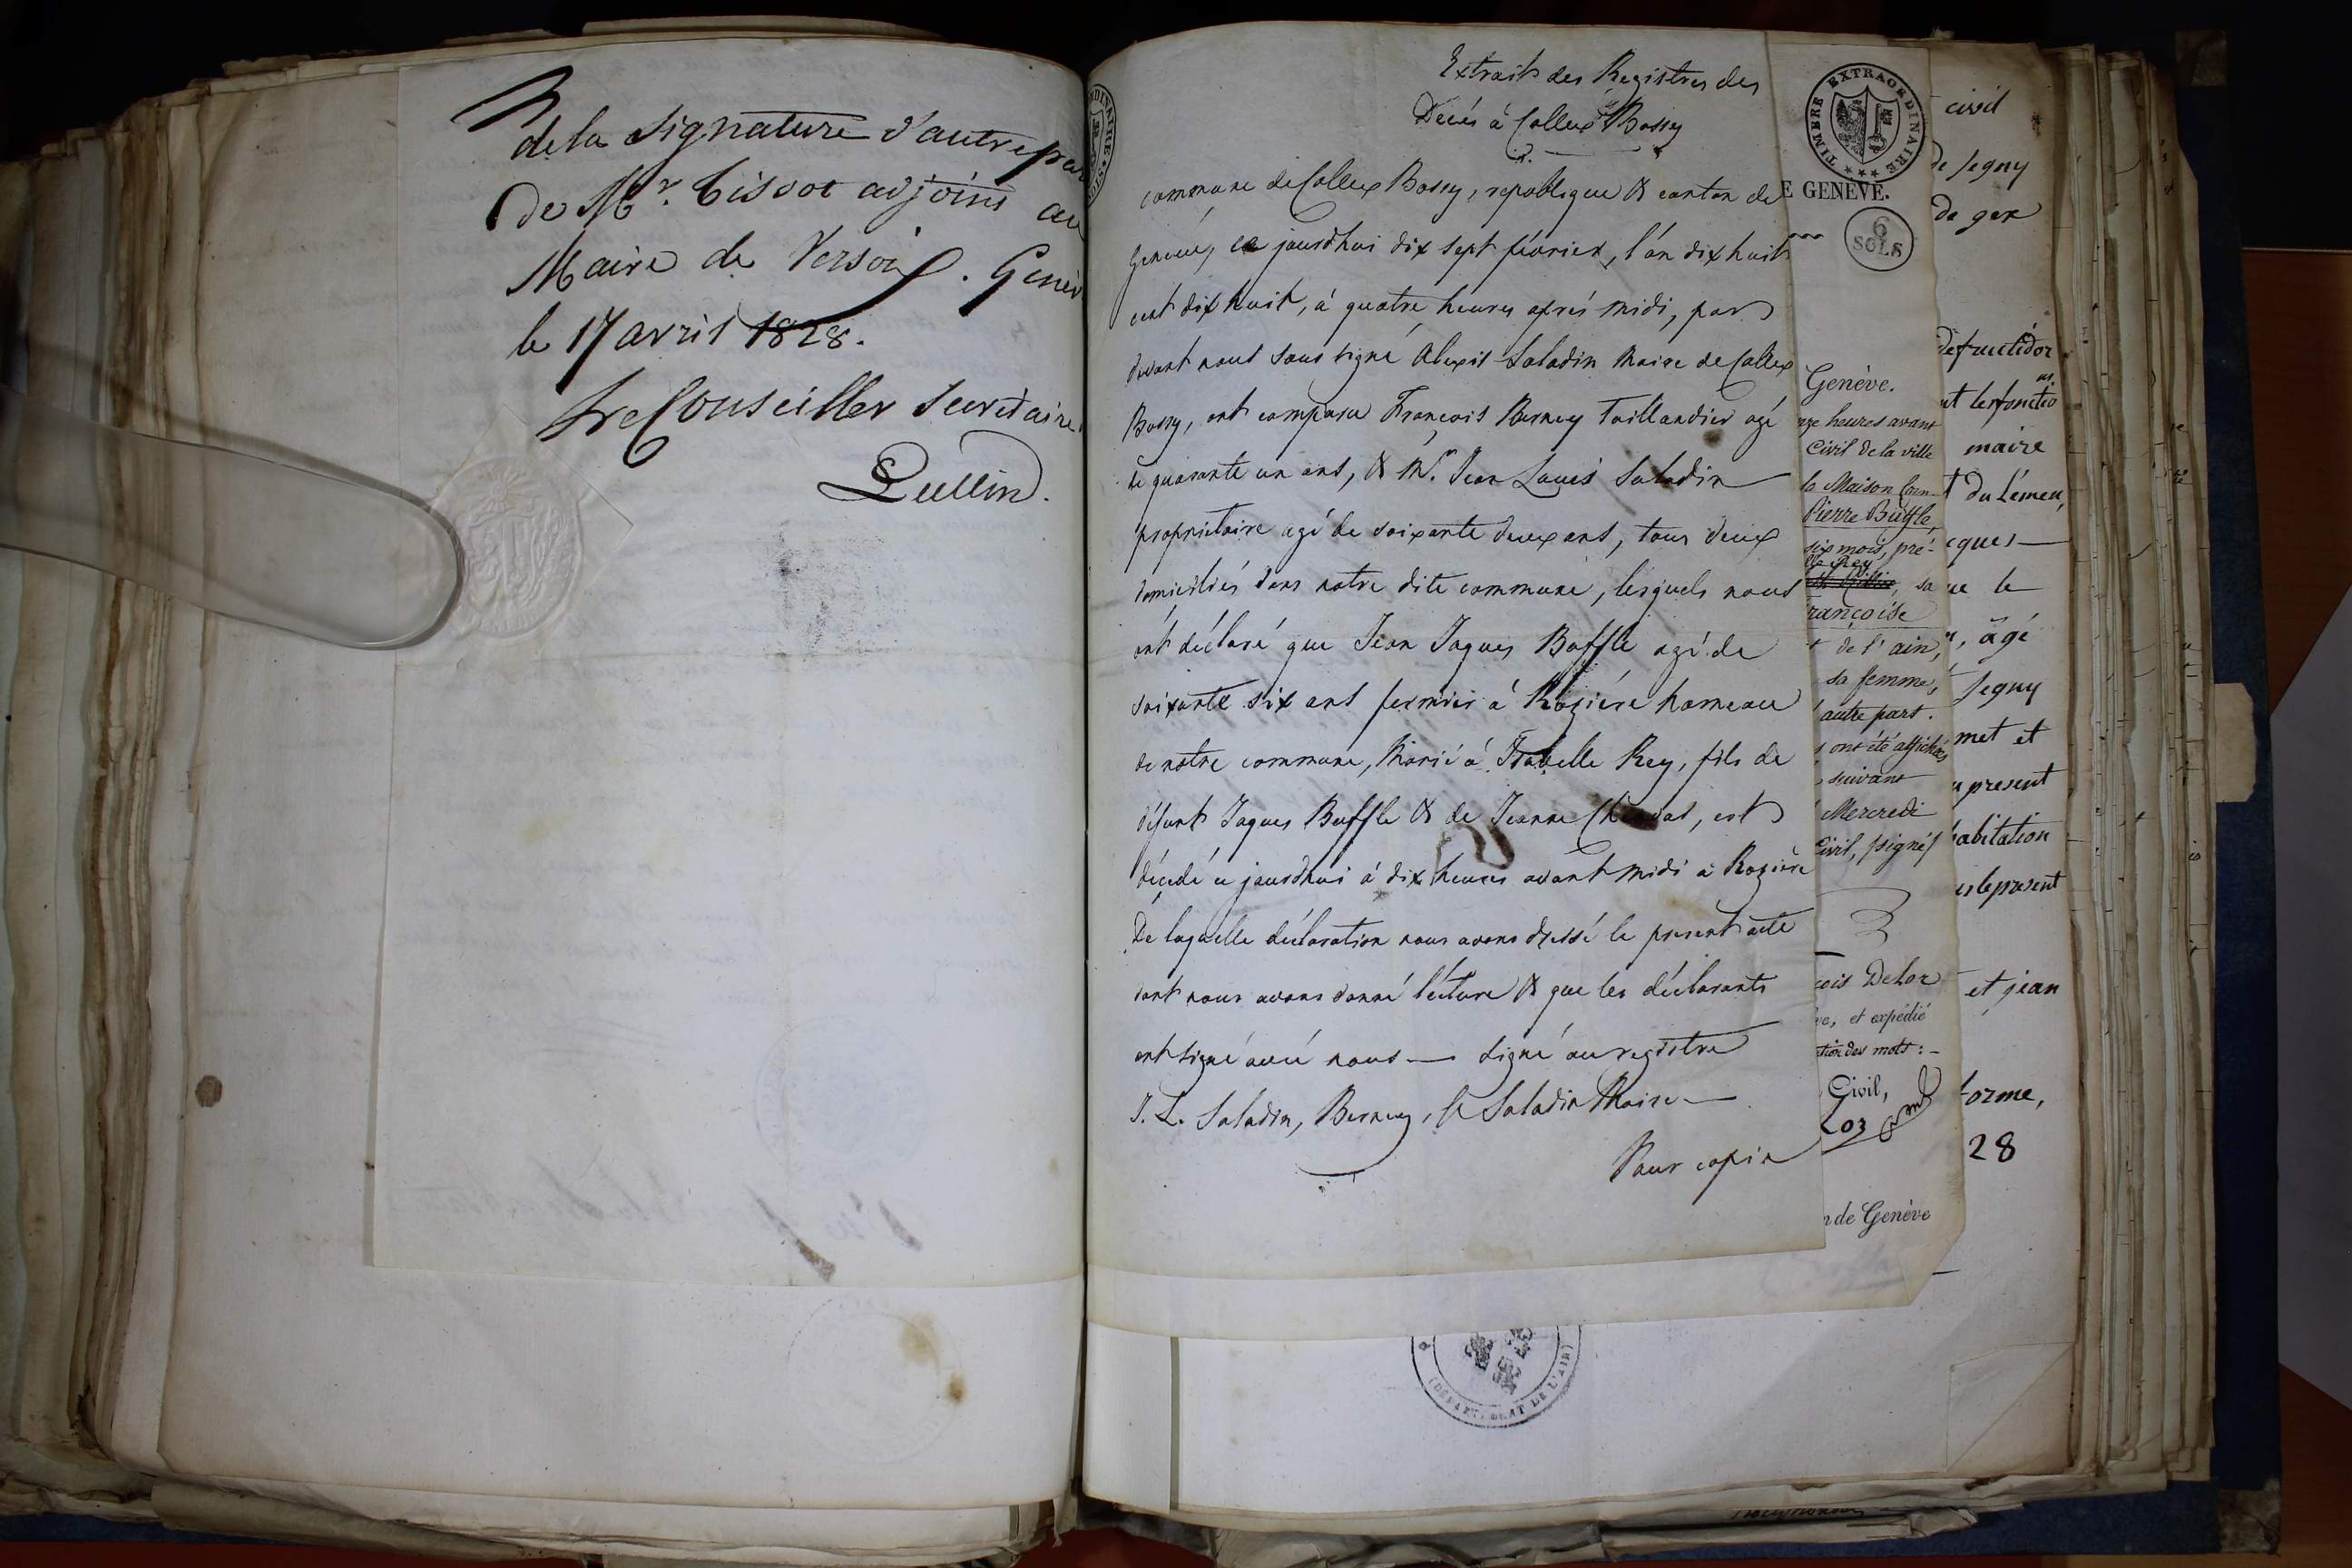 de la signature d'autre par
de Mr. Tissot adjoint au
Maire de Versoix. Genèv
le 17 avril 1828.
Le Conseiller Secretaire
Lullin.
Extrait des Registres des
Décés à Collex Bossy
commune de Collex Bossy, republique & canton de
Geneve, ce jourdhui dix sept février, l'an dix huit
cent dix huit, à quatre heures aprés midi, par
devant nous sous signé Alexis Saladin Maire de Collex
Bossy, ont comparu François Berney Taillandier agé
de quarante un ans, & Mr. Jean Louis Saladin
propriétaire agé de soixante deux ans, tous deux
domiciliés dans notre dite commune, lesquels nous
ont déclaré que Jean Jaques Buffle agé de
soixante six ans fermier à Roziére hameau
de notre commune, Marié à Isabelle Rey, fils de
défunt Jaques Buffle & de Jeanne est
décédé ce jourdhui à dix heures avant midi à Roziére
De laquelle déclaration nous avons dressé le present acte
dont nous avons donné lécture & que les déclarants
ont signé avec nous — signé au registre
J. L. Saladin, Berney, Saladin Maire —
Pour copie
TIMBRE EXTRAORDINAIRE
E GENÈVE.
6
SOLS
Genève.
ze heures avant
Civil de la ville
la Maison Com-
Pierre Buffle,
six mois, pré-
Rey
sa
rançoise
t de l'ain,
sa femme,
autre part.
s ont été affichés
suivant
Mercredi
Civil, signé/
çois Delor
ve, et expédié
tion des mots: -
Civil,
Loz
n de Genève
civil
de Segny
de gex
de fructidor
nt les foncti
maire
t du Léman,
cques —
ue le
, âgé
Segny
met et
u present
habitation
es le present
et jean
forme,
28
(DÉPARTEMENT DE L'AIN)